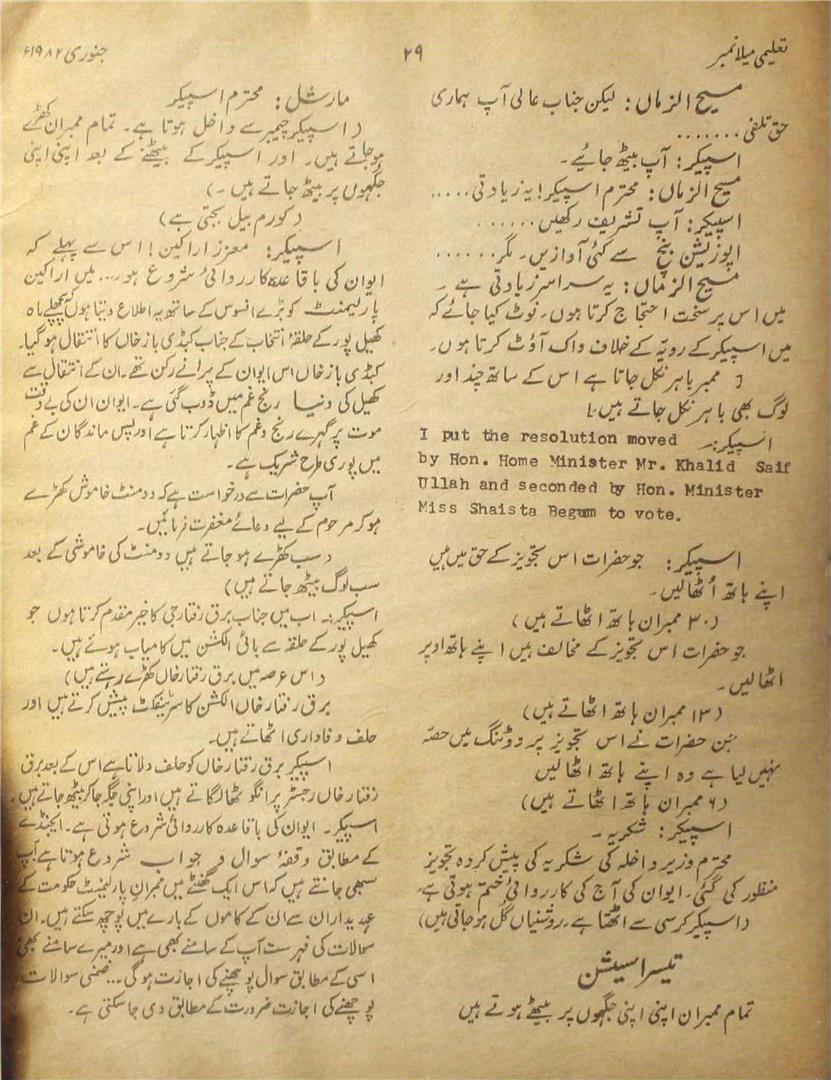 تعلیمی میلا نمبر
۲۹
جنوری ۱۹۸۲ء
مسیح الزماں: لیکن جناب عالی آپ ہماری
حق تلفی.......
اسپیکر: آپ بیٹھ جائیے۔
مسیح الزماں: محترم اسپیکر! یہ زیادتی.....
اسپیکر: آپ تشریف رکھیں......
اپوزیشن بنچ سے کئی آوازیں۔ مگر......
مسیح الزماں: یہ سراسر زیادتی ہے۔
میں اس پر سخت احتجاج کرتا ہوں۔ نوٹ کیا جائے کہ
میں اسپیکر کے رویّہ کے خلاف واک آؤٹ کرتا ہوں۔
[ ممبر باہر نکل جاتا ہے اس کے ساتھ چند اور
لوگ بھی باہر نکل جاتے ہیں۔]
اسپیکر:۔ I put the resolution moved
by Hon. Home Minister Mr. Khalid Saif
Ullah and seconded by Hon. Minister
Miss Shaista Begum to vote.
اسپیکر: جو حضرات اس تجویز کے حق میں ہیں
اپنے ہاتھ اُٹھالیں۔
(۳۰ ممبران ہاتھ اٹھاتے ہیں)
جو حضرات اس تجویز کے مخالف ہیں اپنے ہاتھ اوپر
اٹھالیں۔
(۱۳ ممبران ہاتھ اٹھاتے ہیں)
جن حضرات نے اس تجویز پر ووٹنگ میں حصّہ
نہیں لیا ہے وہ اپنے ہاتھ اٹھالیں
(۶ ممبران ہاتھ اٹھاتے ہیں)
اسپیکر: شکریہ۔
محترم وزیر داخلہ کی شکریہ کی پیش کردہ تجویز
منظور کی گئی۔ ایوان کی آج کی کارروائی ختم ہوتی ہے۔
(اسپیکر کرسی سے اٹھتا ہے۔ روشنیاں گُل ہو جاتی ہیں)
تیسرا سیشن
تمام ممبران اپنی اپنی جگہوں پر بیٹھے ہوتے ہیں
مارشل: محترم اسپیکر
(اسپیکر چیمبر سے داخل ہوتا ہے۔ تمام ممبران کھڑے
ہو جاتے ہیں۔ اور اسپیکر کے بیٹھنے کے بعد اپنی اپنی
جگہوں پر بیٹھ جاتے ہیں۔)
(کورم بیل بجتی ہے)
اسپیکر: معزز اراکین! اس سے پہلے کہ
ایوان کی باقاعدہ کارروائی شروع ہو... میں اراکین
پارلیمنٹ کو بڑے افسوس کے ساتھ یہ اطلاع دیتا ہوں کہ پچھلے ماہ
کھیل پور کے حلقۂ انتخاب کے جناب کبڈی باز خاں کا انتقال ہوگیا۔
کبڈی باز خاں اس ایوان کے پرانے رکن تھے۔ ان کے انتقال سے
کھیل کی دنیا رنج غم میں ڈوب گئی ہے۔ ایوان ان کی بے وقت
موت پر گہرے رنج و غم کا اظہار کرتا ہے اور پس ماندگان کے غم
میں پوری طرح شریک ہے۔
آپ حضرات سے درخواست ہے کہ دو منٹ خاموش کھڑے
ہو کر مرحوم کے لیے دعائے مغفرت فرمائیں۔
(سب کھڑے ہو جاتے ہیں دو منٹ کی خاموشی کے بعد
سب لوگ بیٹھ جاتے ہیں)
اسپیکر:۔ اب میں جناب برق رفتار جی کا خیر مقدم کرتا ہوں جو
کھیل پور کے حلقہ سے بائی الکشن میں کامیاب ہوئے ہیں۔
(اس عرصہ میں برق رفتار خاں کھڑے رہتے ہیں)
برق رفتار خاں الکشن کا سرٹیفکٹ پیش کرتے ہیں اور
حلف وفاداری اٹھاتے ہیں۔
اسپیکر برق رفتار خاں کو حلف دلاتا ہے اس کے بعد برق
رفتار خاں رجسٹر پر انگوٹھا لگاتے ہیں اور اپنی جگہ جا کر بیٹھ جاتے ہیں۔
اسپیکر۔ ایوان کی باقاعدہ کارروائی شروع ہوتی ہے۔ ایجنڈے
کے مطابق وقفۂ سوال و جواب شروع ہوتا ہے۔ آپ
سبھی جانتے ہیں کہ اس ایک گھنٹے میں ممبران پارلیمنٹ حکومت کے
عہدیداران سے ان کے کاموں کے بارے میں پوچھ سکتے ہیں۔ ان
سوالات کی فہرست آپ کے سامنے بھی ہے اور میرے سامنے بھی
اسی کے مطابق سوال پوچھنے کی اجازت ہوگی... ضمنی سوالات
پوچھنے کی اجازت ضرورت کے مطابق دی جاسکتی ہے۔